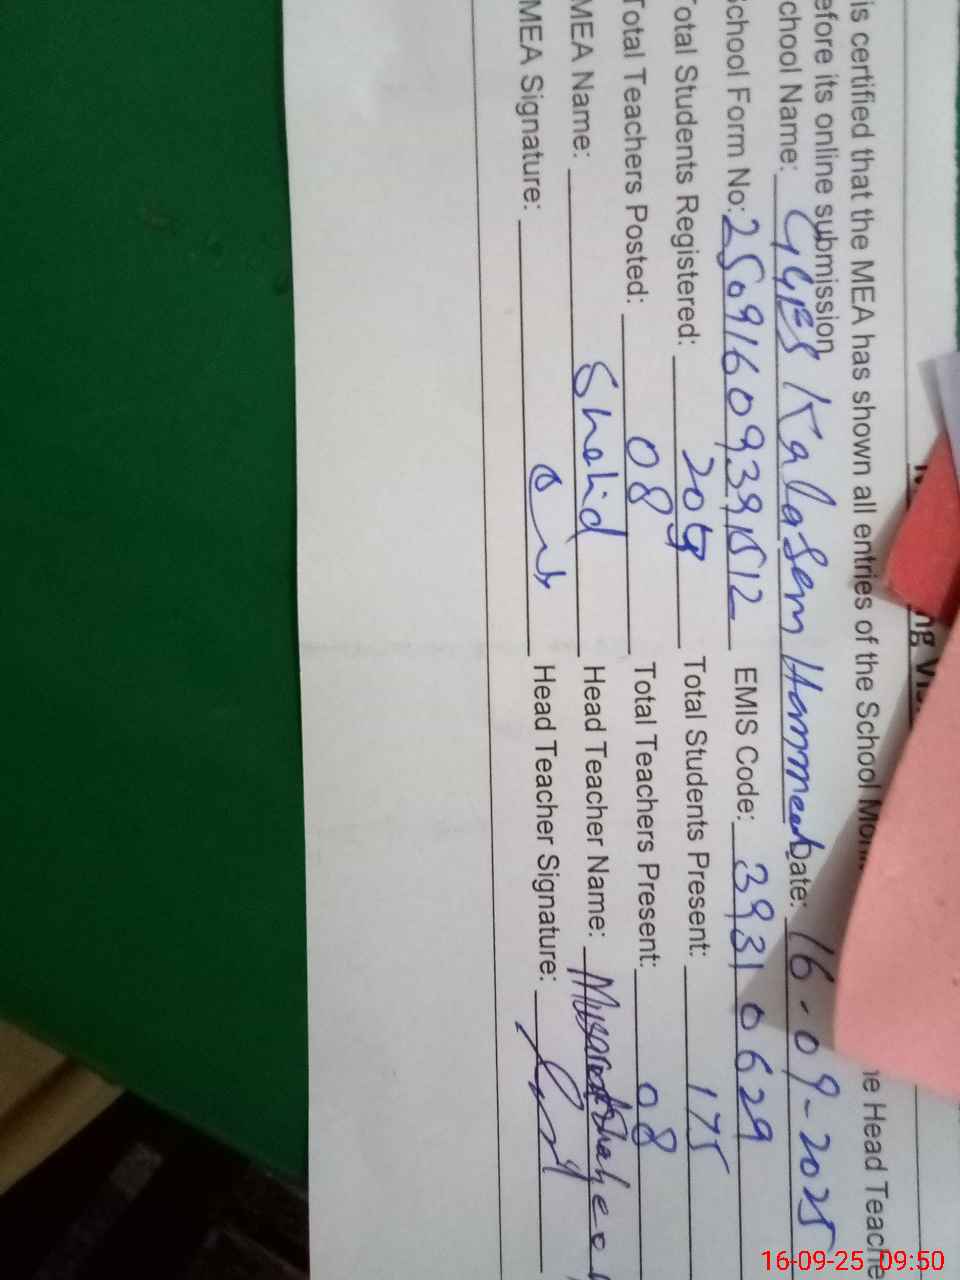 ng Vis
is certified that the MEA has shown all entries of the School Moni he Head Teache
efore its online submission
chool Name: GGES Kalasem Hammead Date: 16-09-2025
chool Form No: 2509160939512 EMIS Code: 39310629
otal Students Registered: Total Students Present: 175
Total Teachers Posted: 08 Total Teachers Present: 08
MEA Name: Shahid Head Teacher Name:
MEA Signature: Head Teacher Signature:
16-09-25 09:50